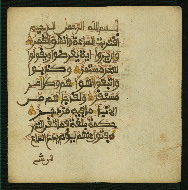 بسم الله الرحمن الرحيم
اقتربت الساعة وانشق القمر
وإن يروا ءاية يعرضوا ويقولوا
سحر مستمر وكذبوا
واتبعوا أهواءهم وكل أمر
مستقر ولقد جاءهم من
الأنباء ما فيه مزدجر
حكمة بالغة فما تغن النذر
فتول عنهم يوم يدع الداع